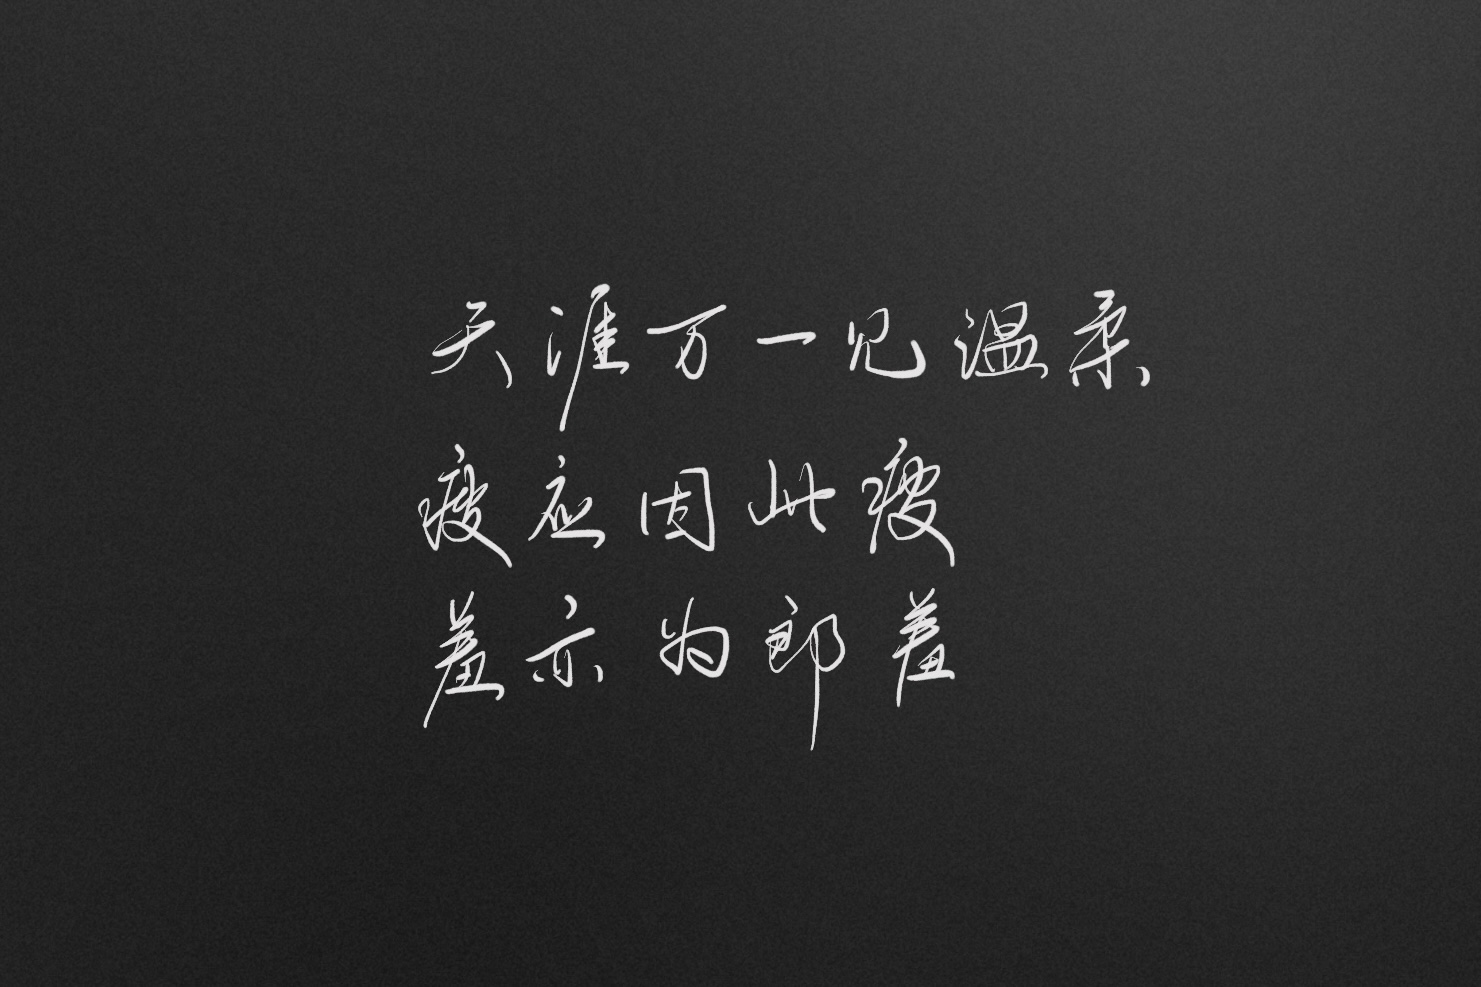 天涯万一见温柔
瘦应因此瘦
羞亦为郎羞